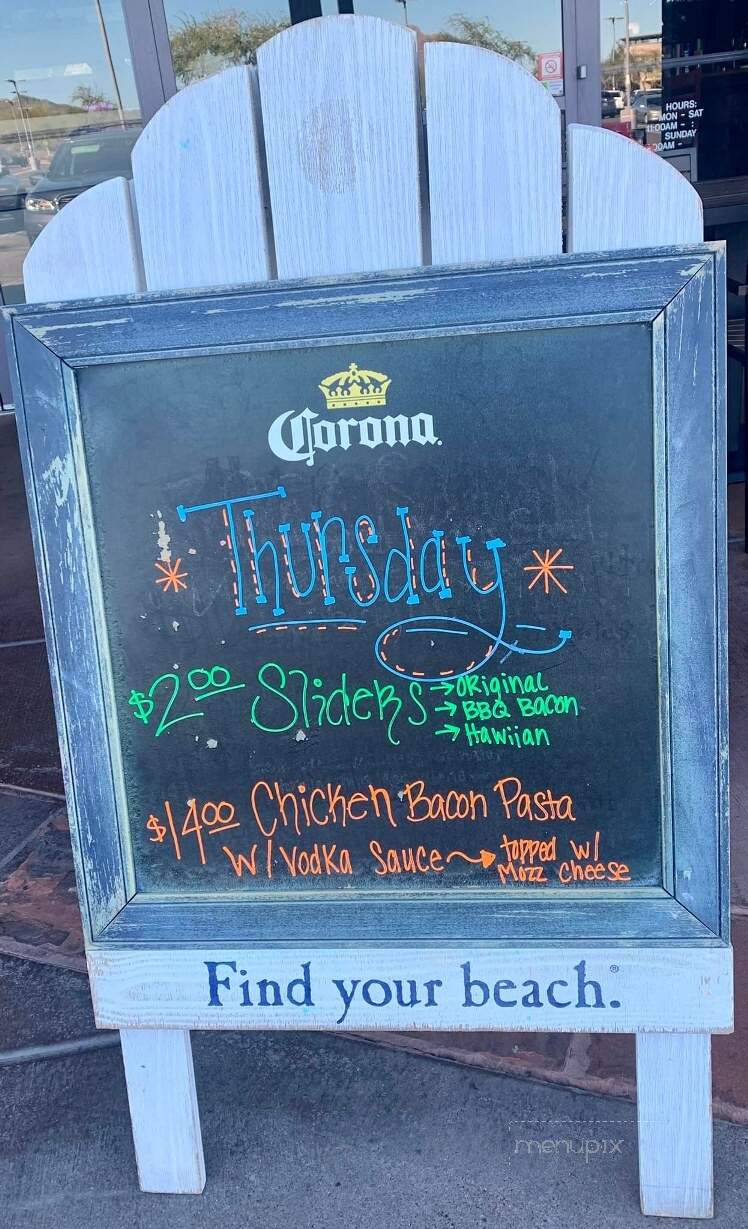 HOURS:
MON - SAT
SUNDAY
Corona
Thursday
$2.00 Sliders → Original
→ BBQ Bacon
→ Hawiian
$14.00 Chicken Bacon Pasta
W/ Vodka Sauce → topped w/
Mozz Cheese
Find your beach.®
menupix